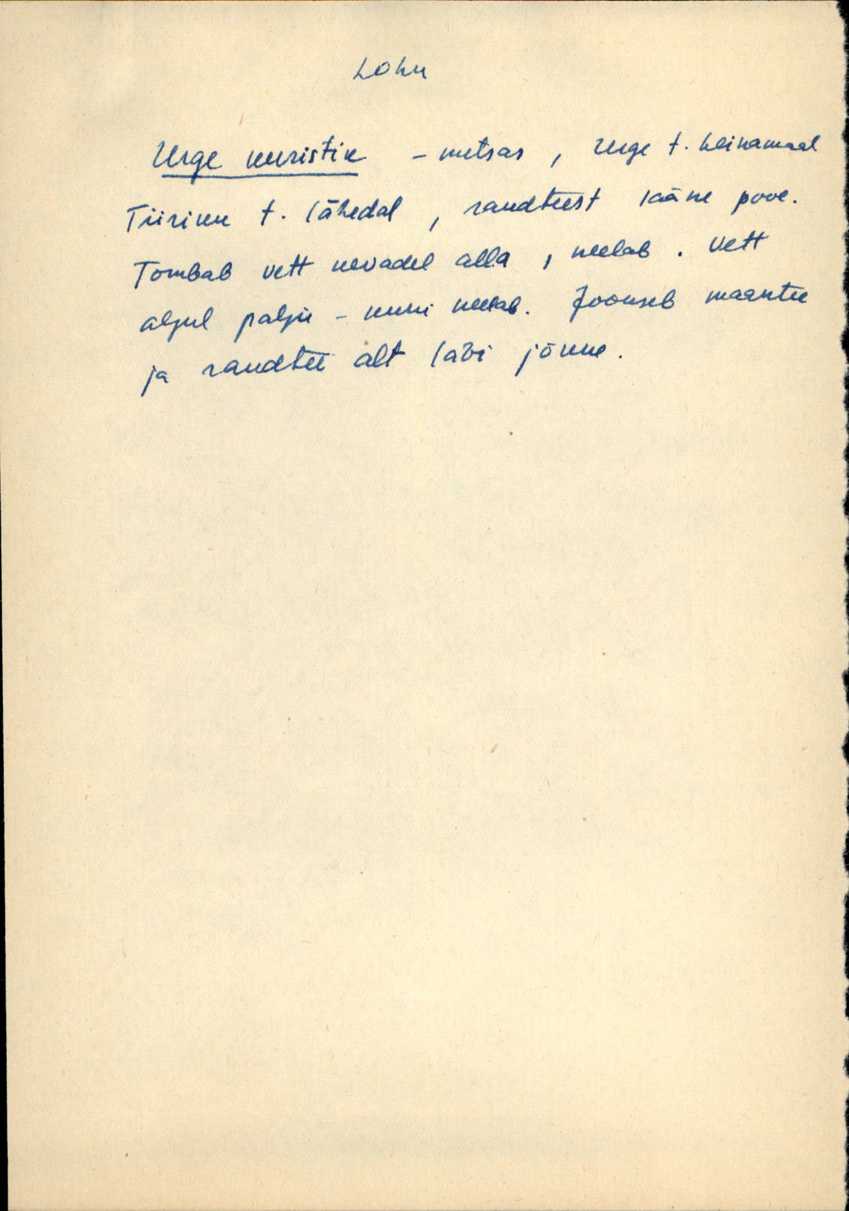 Lohu
Urge kuristik - metsas, Urge t. heinamaal
Tiiriku t. lähedal, raudteest lääne pool.
Tombab vett kevadel alla, neelab. Vett
algul palju - kuni neelab. Jookseb maantee
ja raudtee alt läbi jõkke.